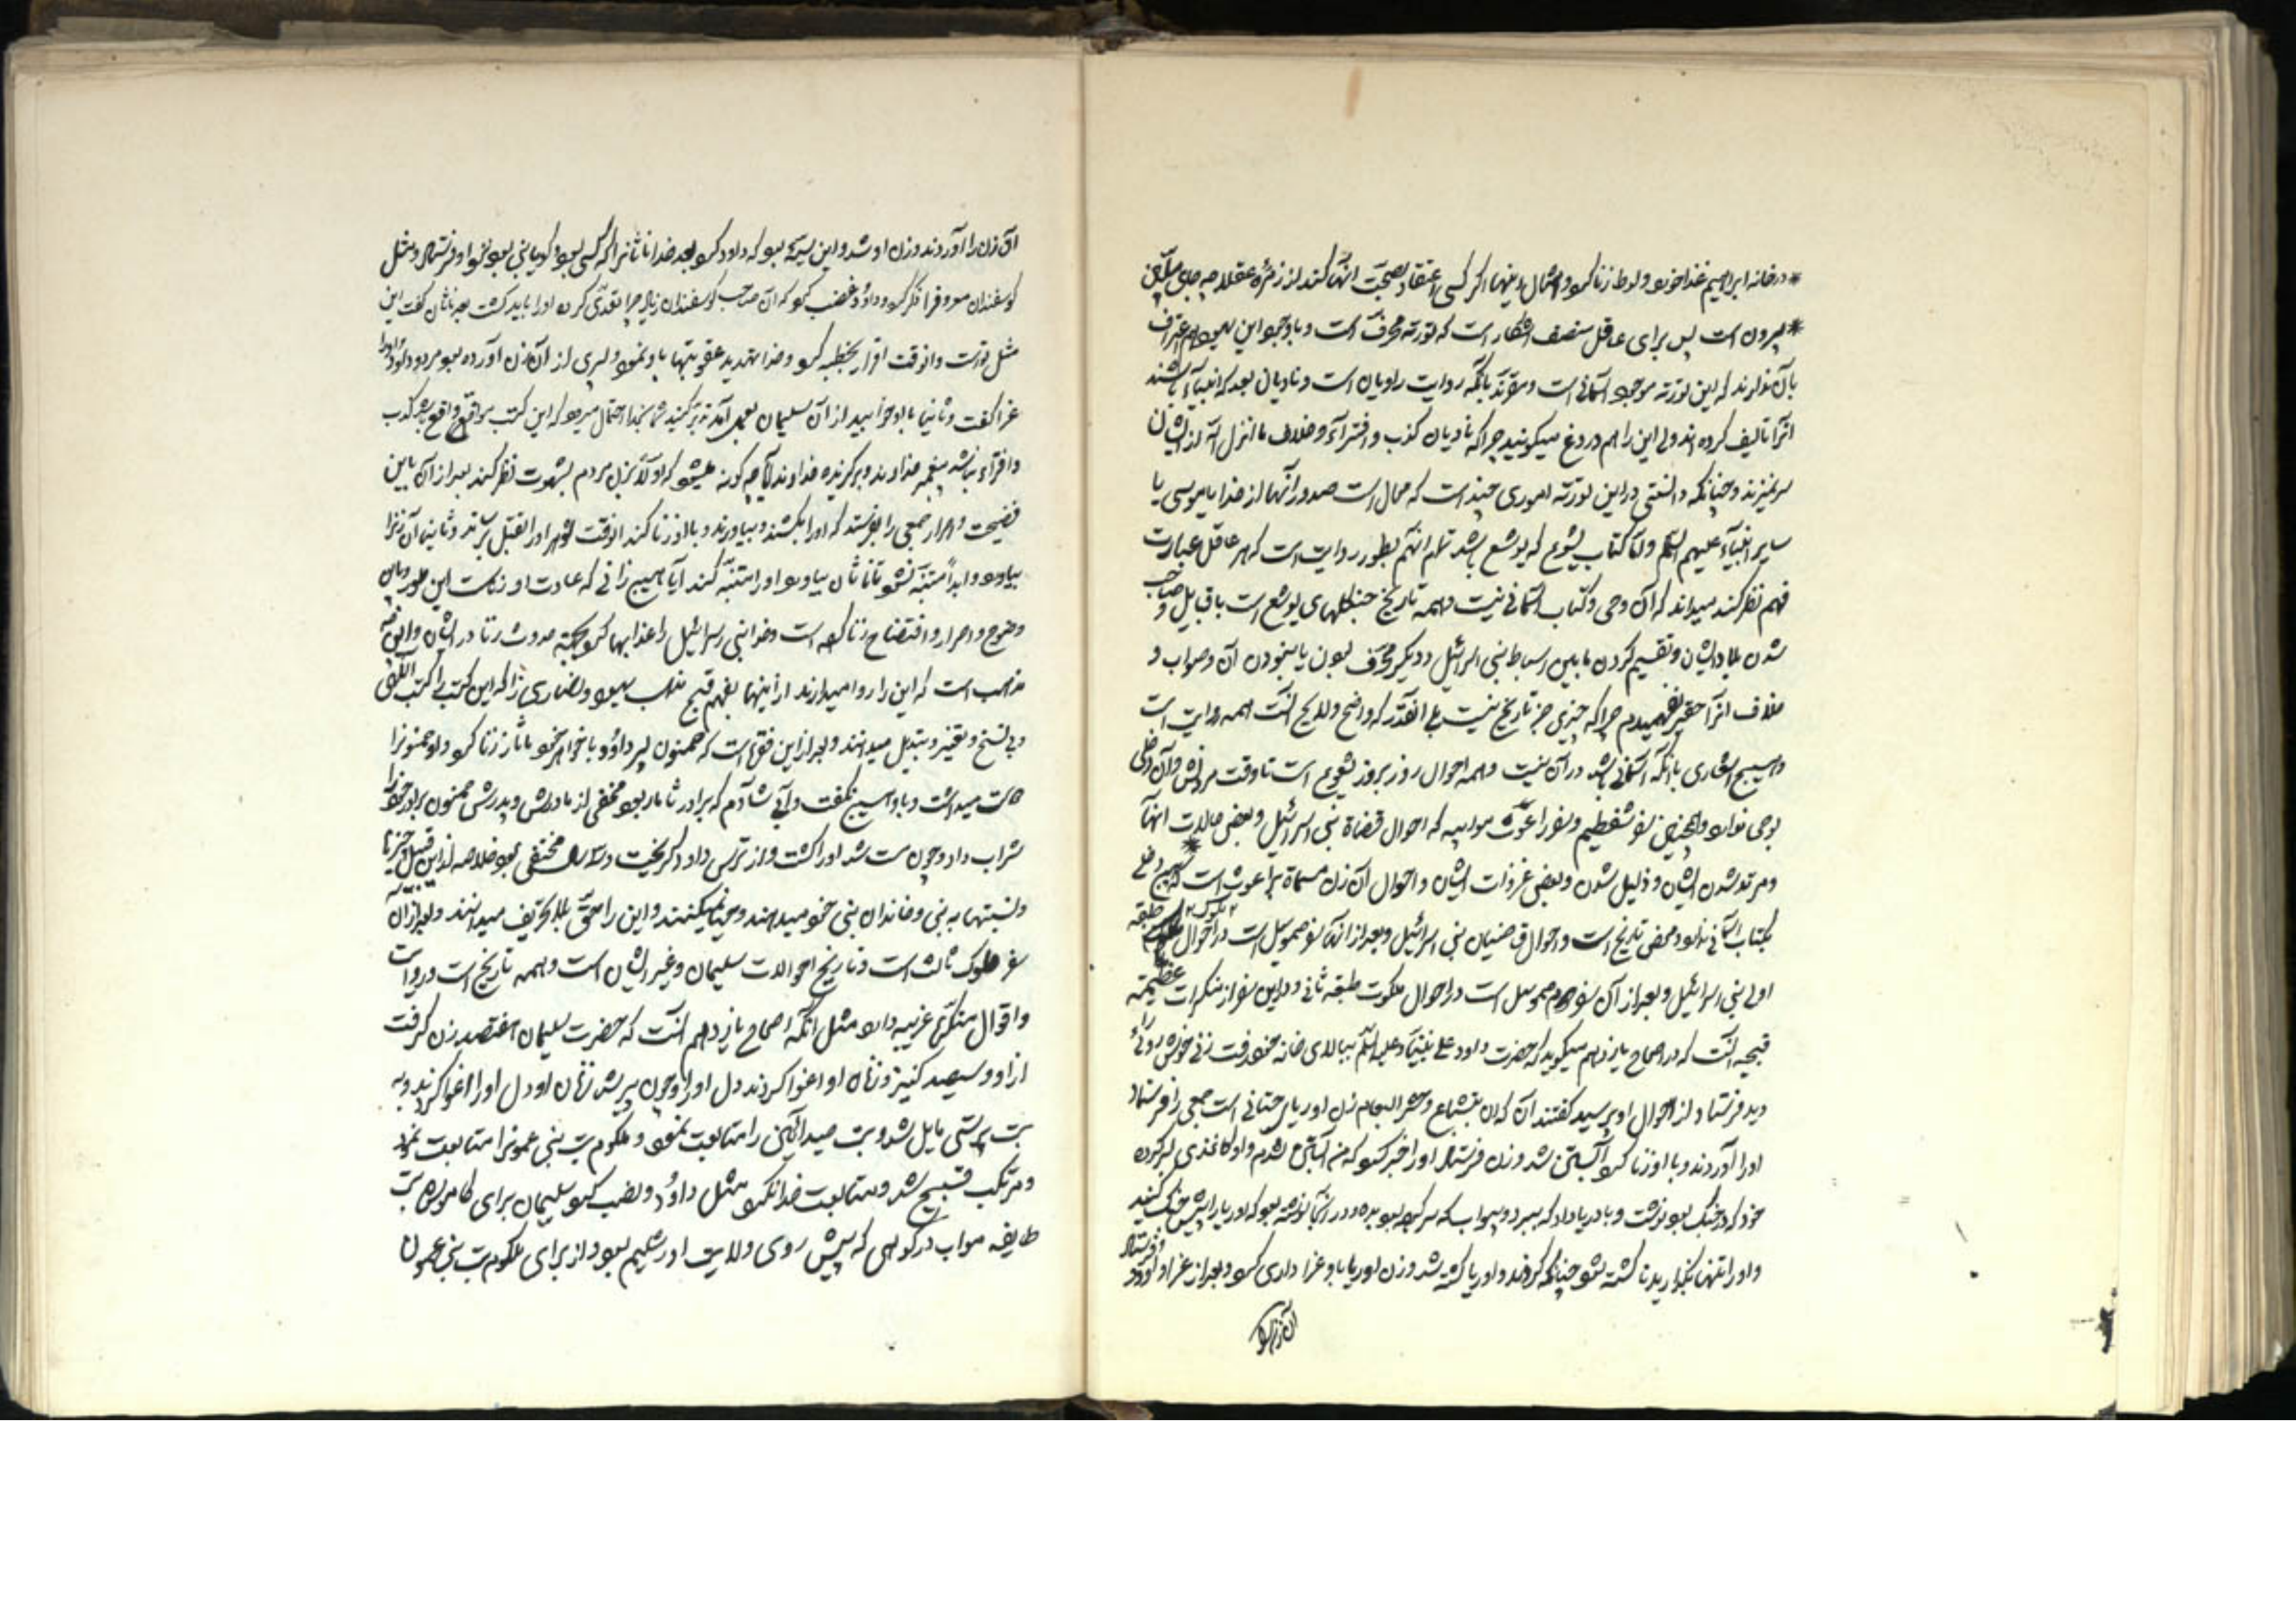 در خانه ابراهیم غذا خورد و لوط زنا کرد و امثال اینها اگر کسی اعتقاد بصحت انها کند از زمره عقلا چه جای ملیّین
بیرون است پس برای عاقل منصف اشکار است که تورته محرّف است و با وجود این یهود هم اعتراف
بآن دارند که این تورته موجود آسمانی است و مقرّند بانکه روایت راویان است و نادیان بعد که انبیاء باشند
انرا تالیف کرده اند ولی این را هم دروغ میکویند چرا که نادیان کذب و افترآء و خلاف ما انزل الله از ایشان
سر نمیزند و چنانکه دانستی در این تورته اموری چند است که محال است صدور آنها از خدا یا موسی یا
سایر انبیآء علیهم السلم و امّا کتاب یشوع که یوشع باشد تمام انهم بطور روایت است که هر عاقل عبارت
فهم نظر کند میداند که آن وحی و کتاب آسمانی نیست و همه تاریخ جنکهای یوشع است با قبایل و صاحب
شدن بلاد ایشان و تقسیم کردن مابین اسباط بنی اسرائیل و دیکر محرّف بودن یا نبودن آن و صواب و
خلاف انرا حقیر نفهمیدم چرا که چیزی جز تاریخ نیست بلی انقدر که واضح و لایح است همه روایت است
و هیچ اشعاری بانکه آسمانی باشد در آن نیست و همه احوال روز بروز یشوع است تا وقت مردنش و آن دخلی
بوحی ندارد و همچنین سفر شفطیم و سفر راعوث موابیه که احوال قضاة بنی اسرائیل و بعض حالات انها
و مرتد شدن ایشان و ذلیل شدن و بعضی غزوات ایشان و احوال آن زن مسماة براعوث است که هیچ دخلی
بکتاب آسمانی ندارد و محض تاریخ است و احوال قاضیان بنی اسرائیل و بعد از انها سفر صموئیل است در احوال ملوک طبقه
اولی بنی اسرائیل و بعد از آن سفر دوم صموئیل است در احوال ملوک طبقه ثانی و در این سفر از منکرات عظیمه
قبیحه انست که در اصحاح یازدهم میکوید که حضرت داود علی نبینا و علیه السلم ببالای خانه خود رفت زنی خوش روئی را
دید فرستاد و از احوال او پرسید کفتند آن زن بتشباع دختر الیعام زن اوریای حتانی است جمعی را فرستاد
او را آوردند و با او زنا کرد و آبستن شد و زن فرستاد او را خبر کرد که من آبستن شدم و او کاغذی بسر کرده
خود که در جنک بود نوشت و باوریا داد که ببرد و بیواب که سرکرده بود بدهد و در آنجا نوشته بود که اوریا را پیش جنک کنید
و او را تنها بکذارید تا کشته شود چنانکه کردند و اوریا کشته شد و زن اوریا باو عزا داری کرد و بعد از عزا داود فرستاد
آن زن را
آن زن را آوردند و زن او شد و این سیئه بود که داود کرد بعد خدا ناثان را که نبی بود نزد او فرستاد و مثل
کوسفندان مرد فقیر ذکر کرد و داود غضب کرد که آن صاحب کوسفندان زیاد چرا تعدّی کرده او را باید کشت بعد ناثان کفت این
مثل تو است و انوقت اقرار بخطیه کرد و خدا تهدید عقوبتها باو نمود و پسری از آن زن آورده بود مرد و داود
عزا کفت و ثانیا با او خوابید از آن سلیمان بعمل آمد تدبّر کنید شما بخدا احتمال میرود که این کتب موافق واقع باشد کذب
و افترآء نباشد پیغمبر خداوند و برکزیده خداوند آیا چه کونه میشود که اولا بزن مردم بشهوت نظر کند بعد از آن باین
فضیحت و اصرار جمعی را بفرستد که او را بکشند و بیاورند و با او زنا کند انوقت شوهر او را بقتل برساند و ثانیا آن زنرا
بیاورد و ابداً متنبّه نشود تا ناثان بیاید و او را متنبّه کند آیا هیچ زانی که عادت او زنا است این طور باین
وضوح و اصرار و افتضاح زنا کرده است و خدا بنی اسرائیل را عذابها کرد بجهة حدوث زنا در ایشان و این چه
مذهب است که این را روا میدارند از اینها بفهم قبح مذهب یهود و نصاری را که این کتب را کتب الهی
و بی نسخ و تغییر و تبدیل میدانند و بعد از این فقره است که حمنون پسر داوُد با خواهر خود ثامار زنا کرد و داود حمنونرا
دوست میداشت و باو هیچ نکفت و ابی شالم که برادر ثامار بود مخفی از مادرش و پدرش حمنون برادر خود را
شراب داد و چون مست شد او را کشت و از ترس داود کریخت و مخفی بود خلاصه از این قبیل چیزها
و نسبتها به نبی و خاندان نبی خود میدهند و حیا نمیکنند و این را صحّی بلا تحریف میدانند و بعد از آن
سفر ملوک ثالث است و تاریخ احوالات سلیمان و غیر ایشان است و همه تاریخ است و روایت
و اقوال منکره غریبه دارد مثل انکه اصحاح یازدهم انست که حضرت سلیمان هفتصد زن کرفت
ازاد و سیصد کنیز و زنان او اغوا کردند دل او را و چون پیر شد زنان او دل او را اغوا کردند و به
بت پرستی مایل شد و بت صیدانّین را متابعت نمود و ملکوم بت بنی عمونرا متابعت نمود
و مرتکب قبیح شد و متابعت خدا نکرد مثل داوُد و نصب کرد سلیمان برای کاموش بت
طایفه مواب در کوهی که پیش روی ولایت اورشلیم بود و از برای ملکوم بت بنی عمون